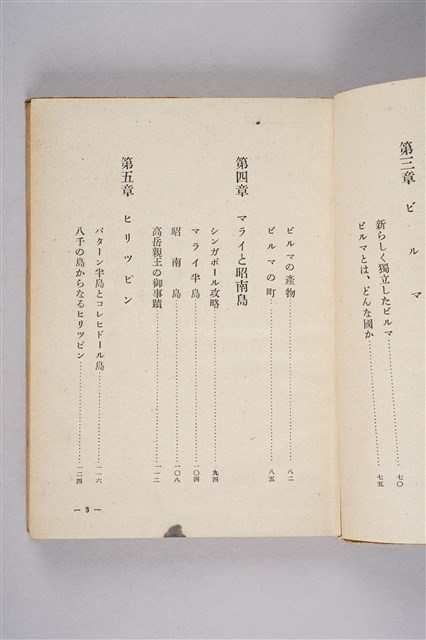 第三章 ビルマ
新らしく獨立したビルマ……七〇
ビルマとは、どんな國か……七五
ビルマの產物……八二
ビルマの町……八五
第四章 マライと昭南島
シンガポール攻略……九四
マライ半島……一〇四
昭南島……一〇八
高岳親王の御事蹟……一一二
第五章 ヒリツピン
バターン半島とコレヒドール島……一一六
八千の島からなるヒリツピン……一二四
— 3 —